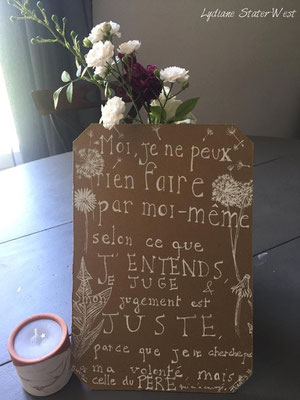 Lydiane StaterWest
Moi, je ne peux
rien faire
par moi-même
selon ce que
J'ENTENDS,
JE JUGE &
mon jugement est
JUSTE,
parce que je ne cherche pas
ma volonté, mais
celle du PÈRE